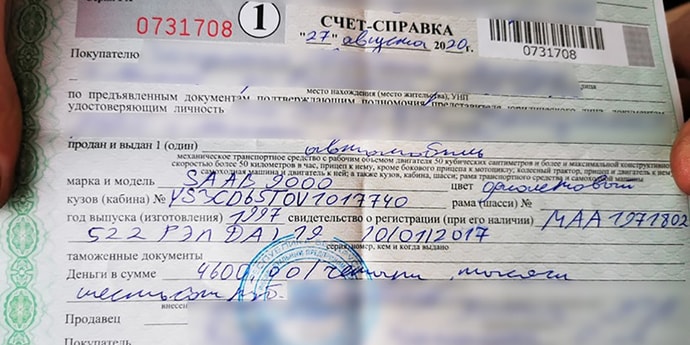 0731708 1 СЧЕТ-СПРАВКА
"27" августа 2020г. 0731708
Покупателю
место нахождения (место жительства), УНП
по предъявленным документам, подтверждающим полномочия представителя юридического лица, документам,
удостоверяющим личность
продан и выдан 1 (один) автомобиль
механическое транспортное средство с рабочим объемом двигателя 50 кубических сантиметров и более и максимальной конструктивной
скоростью более 50 километров в час, прицеп к нему, кроме бокового прицепа к мотоциклу; колесный трактор, прицеп и двигатель к нему;
самоходная машина и двигатель к ней; а также кузов, кабина, шасси, рама транспортного средства и самоходной машины
марка и модель SAAB 9000 цвет фиолетовый
кузов (кабина) № YS3CD65TOV1017740 рама (шасси) №
год выпуска (изготовления) 1997 свидетельство о регистрации (при его наличии) МАА 1971802
522 РЭП ГАИ 19 10/01/2017
серия, номер, кем и когда выдано
таможенные документы
Деньги в сумме 4600,00/четыре тысячи
шестьсот
внесен
Продавец
Покупатель